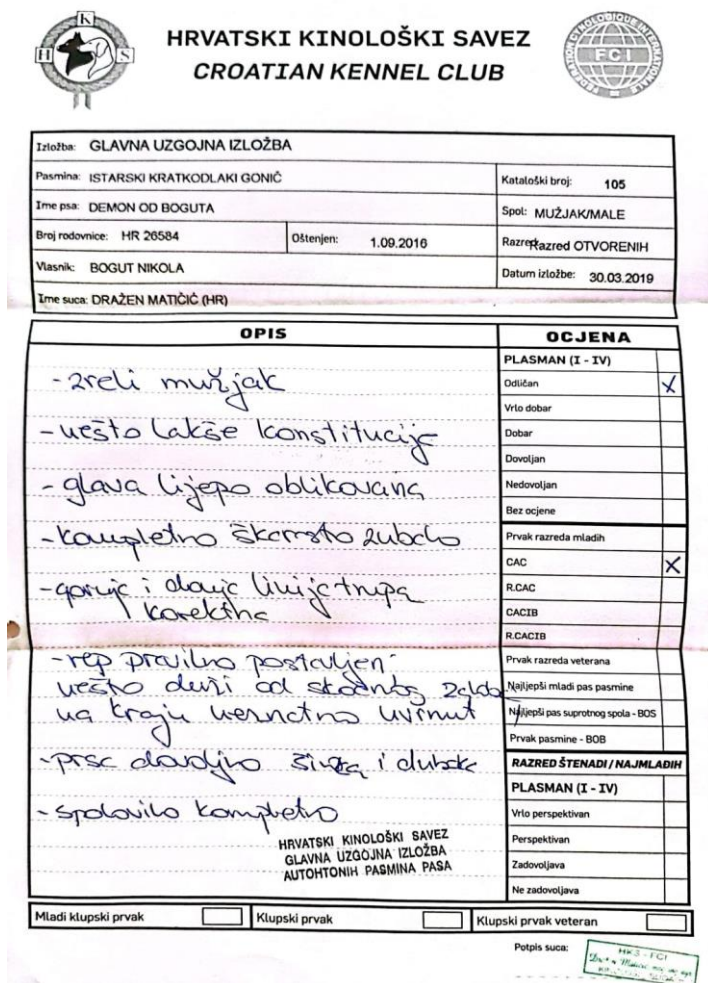 K
H S
HRVATSKI KINOLOŠKI SAVEZ
CROATIAN KENNEL CLUB
FEDERATION CYNOLOGIQUE INTERNATIONALE
FCI
Izložba: GLAVNA UZGOJNA IZLOŽBA
Pasmina: ISTARSKI KRATKODLAKI GONIČ
Kataloški broj: 105
Ime psa: DEMON OD BOGUTA
Spol: MUŽJAK/MALE
Broj rodovnice: HR 26584
Oštenjen: 1.09.2016
Razred Razred OTVORENIH
Vlasnik: BOGUT NIKOLA
Datum izložbe: 30.03.2019
Ime suca: DRAŽEN MATIČIĆ (HR)
OPIS
- zreli mužjak
- nešto lakše konstitucije
- glava lijepo oblikovana
- kompletno škarasto zubalo
- gornja i donja linija trupa
korektna
- rep pravilno postavljen
nešto duži od skočnog zgloba
na kraju neznatno uvrnut
- prsa dovoljno široka i duboka
- spolovilo kompletno
HRVATSKI KINOLOŠKI SAVEZ
GLAVNA UZGOJNA IZLOŽBA
AUTOHTONIH PASMINA PASA
OCJENA
PLASMAN (I - IV)
Odličan X
Vrlo dobar
Dobar
Dovoljan
Nedovoljan
Bez ocjene
Prvak razreda mladih
CAC X
R.CAC
CACIB
R.CACIB
Prvak razreda veterana
Najljepši mladi pas pasmine
Najljepši pas suprotnog spola - BOS
Prvak pasmine - BOB
RAZRED ŠTENADI / NAJMLAĐIH
PLASMAN (I - IV)
Vrlo perspektivan
Perspektivan
Zadovoljava
Ne zadovoljava
Mladi klupski prvak
Klupski prvak
Klupski prvak veteran
Potpis suca:
HKS - FCI